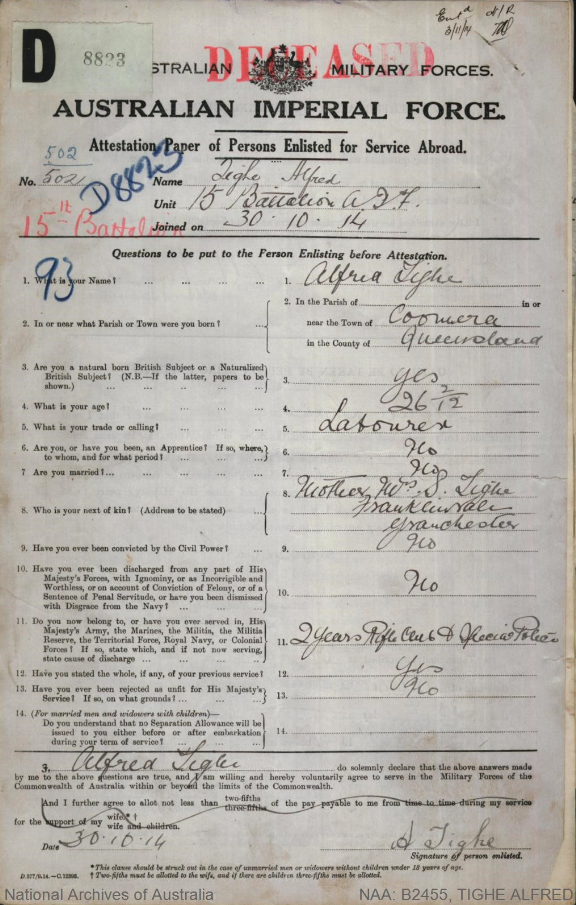 Ent'd
3/11/14
D 8823
DECEASED
AUSTRALIAN MILITARY FORCES.
AUSTRALIAN IMPERIAL FORCE.
Attestation Paper of Persons Enlisted for Service Abroad.
502
No. 502 Name Tighe Alfred
D8823
Unit 15 Battalion A.I.F.
15th Battalion
Joined on 30·10·14
Questions to be put to the Person Enlisting before Attestation.
93
1. What is your Name? ... 1. Alfred Tighe
2. In or near what Parish or Town were you born? ... 2. In the Parish of in or
near the Town of Coomera
in the County of Queensland
3. Are you a natural born British Subject or a Naturalized
British Subject? (N.B.—If the latter, papers to be
shown.) ... 3. Yes
4. What is your age? ... 4. 26 2/12
5. What is your trade or calling? ... 5. Labourer
6. Are you, or have you been, an Apprentice? If so, where,
to whom, and for what period? ... 6. No
7 Are you married? ... 7. No
8. Who is your next of kin? (Address to be stated) ... 8. Mother Mrs. S. Tighe
Franklinvale
Granchester
9. Have you ever been convicted by the Civil Power? ... 9. No
10. Have you ever been discharged from any part of His
Majesty's Forces, with Ignominy, or as Incorrigible and
Worthless, or on account of Conviction of Felony, or of a
Sentence of Penal Servitude, or have you been dismissed
with Disgrace from the Navy? ... 10. No
11. Do you now belong to, or have you ever served in, His
Majesty's Army, the Marines, the Militia, the Militia
Reserve, the Territorial Force, Royal Navy, or Colonial
Forces? If so, state which, and if not now serving,
state cause of discharge ... 11. 2 years Rifle Club & Special Police
12. Have you stated the whole, if any, of your previous service? 12. Yes
13. Have you ever been rejected as unfit for His Majesty's
Service? If so, on what grounds? ... 13. No
14. (For married men and widowers with children)—
Do you understand that no Separation Allowance will be
issued to you either before or after embarkation
during your term of service? ... 14.
I, Alfred Tighe do solemnly declare that the above answers made
by me to the above questions are true, and I am willing and hereby voluntarily agree to serve in the Military Forces of the
Commonwealth of Australia within or beyond the limits of the Commonwealth.
*And I further agree to allot not less than two-fifths three-fifths of the pay payable to me from time to time during my service
for the support of my wife.† wife and children.
Date 30·10·14 A Tighe
Signature of person enlisted.
*This clause should be struck out in the case of unmarried men or widowers without children under 18 years of age.
D.577/9.14.—C.12893. † Two-fifths must be allotted to the wife, and if there are children three-fifths must be allotted.
National Archives of Australia NAA: B2455, TIGHE ALFRED